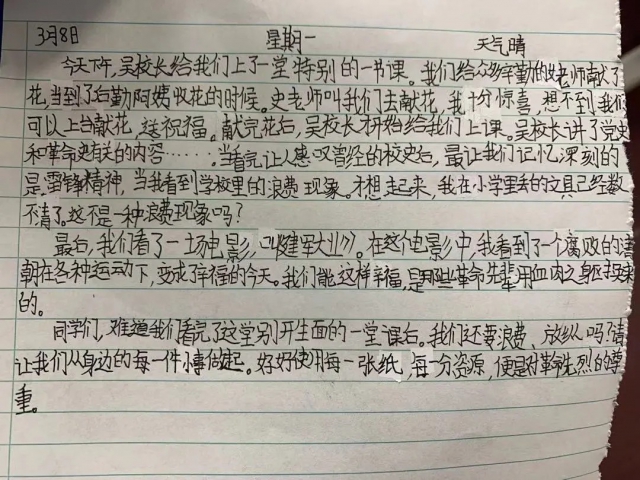 3月8日 星期一 天气晴
今天下午,吴校长给我们上了一堂特别的一书课。我们给众多辛勤的女老师献了
花,当到了后勤阿姨收花的时候。史老师叫我们去献花,我十分惊喜,想不到我们
可以上台献花,送祝福。献完花后,吴校长才开始给我们上课。吴校长讲了党史
和革命史有关的内容……。当看完让人感叹曾经的校史后,最让我们记忆深刻的
是雷锋精神,当我看到学校里的浪费现象。才想起来,我在小学里丢的文具已经数
不清了。这不是一种浪费现象吗?
最后,我们看了一场电影,叫《建军大业》。在这个电影中,我看到了一个腐败的清
朝在各种运动下,变成了幸福的今天。我们能这样幸福,是那些革命先辈用血肉之身
的。
同学们,难道我们看完了这堂别开生面的一堂课后。我们还要浪费、放纵吗?请
让我们从身边的每一件小事做起。好好使用每一张纸,每一分资源,便是对革命先烈的尊
重。